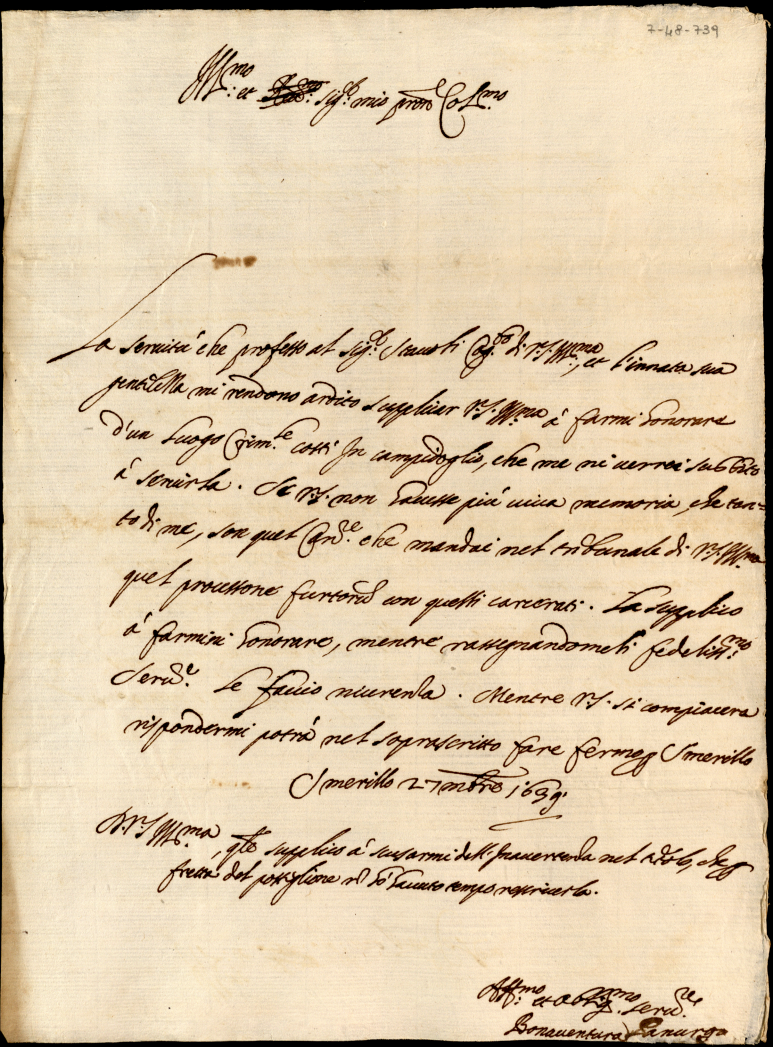 7-48-739
Ill:mo et sig:r mio pron Col:mo
La seruitù che professo al sig:r di V.S. Ill:ma, et l'innata sua
gentilezza mi rendono ardito suppliar V.S. Ill:ma à farmi honorare
d'un luogo Crim:le costì In campidoglio, che me ni verrei subbito
à servirla. Se V.S. non havesse più viva memoria, che tan-
to di me, son quel che mandai nel tribunale di V.S. Ill:ma
quel processone con quelli carcerati. La supplico
à farmini honorare, mentre rassegnandomeli fedeliss:mo
Seru:e le faccio riverenza. Mentre V.S. si compiacerà
rispondermi potrà nel soprascritto fare fermo p Smerillo
Smerillo 27 mbre 1639
D. V.S. Ill:ma, qle supplico à scusarmi dell'Inavertenza nel che p
fretta del postiglione nō hò hauuto tempo rescriverla.
Aff:mo et oblig:mo seru:e
Bonaventura